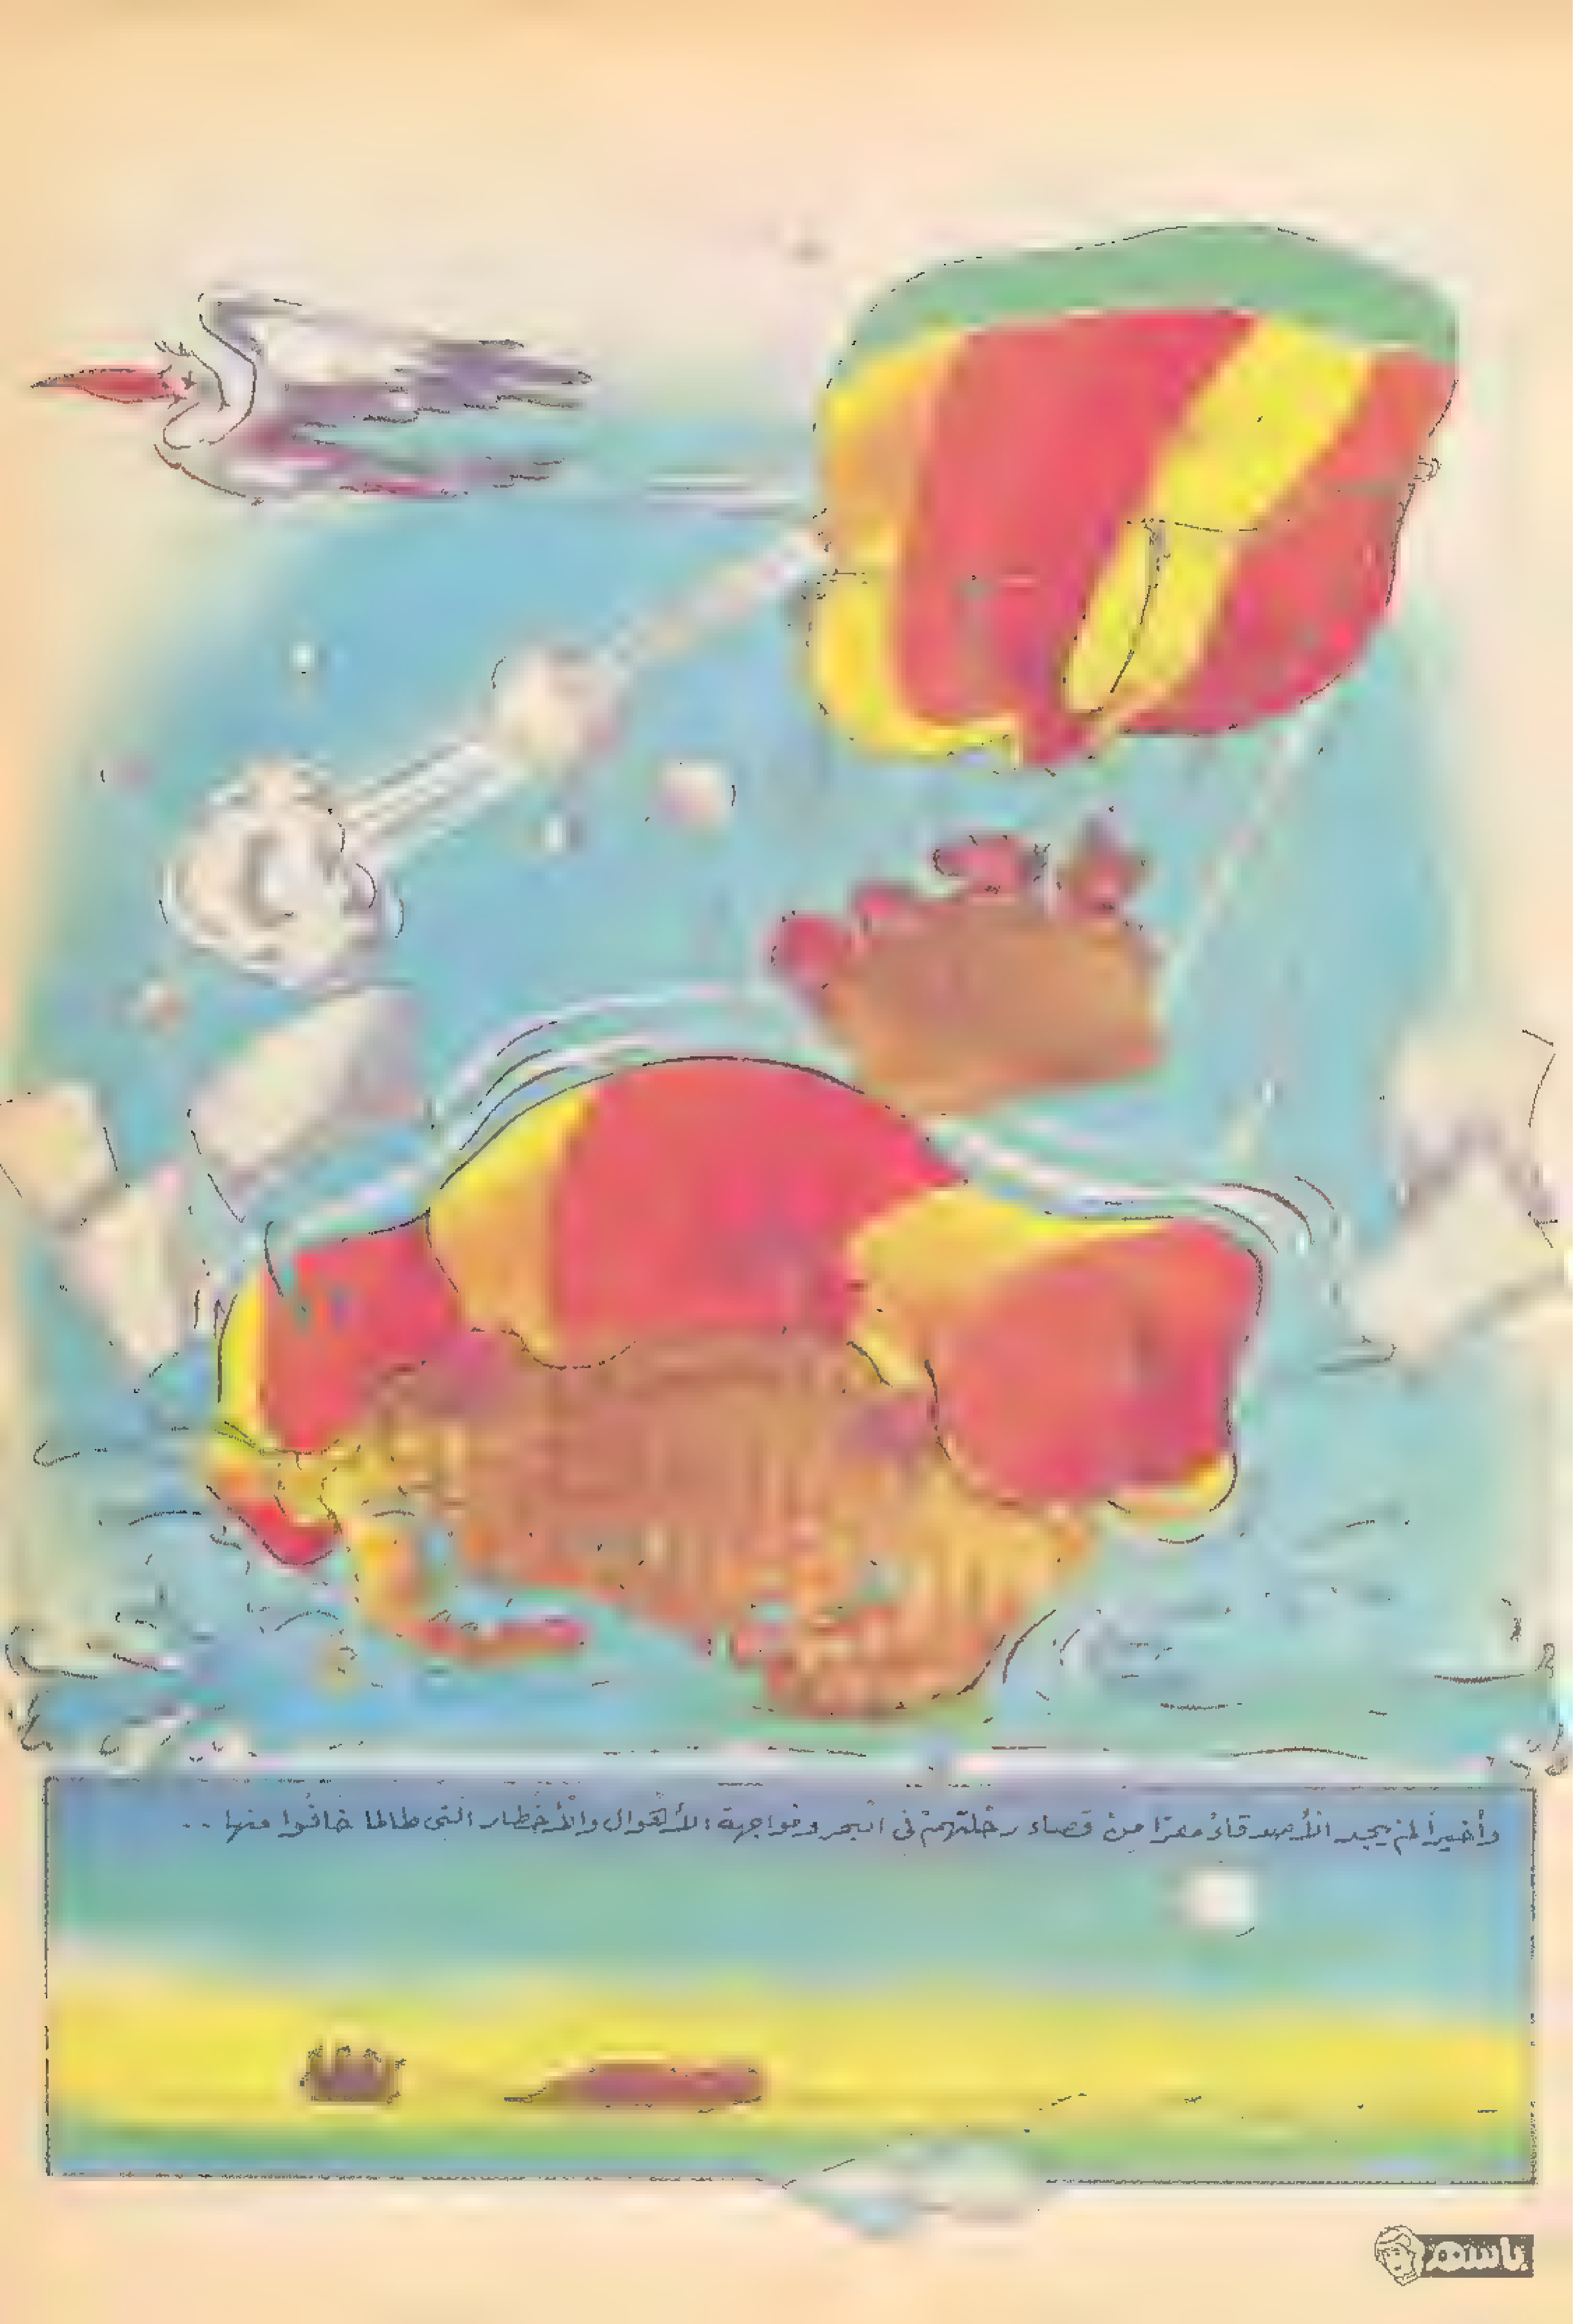 وأخيراً لم يجد الأصدقاءُ مفرًا من قضاء رحْلتهمْ فى البحر ومواجهة الأهوال والأخطار التى طالما خافُوا منها ..
باسم